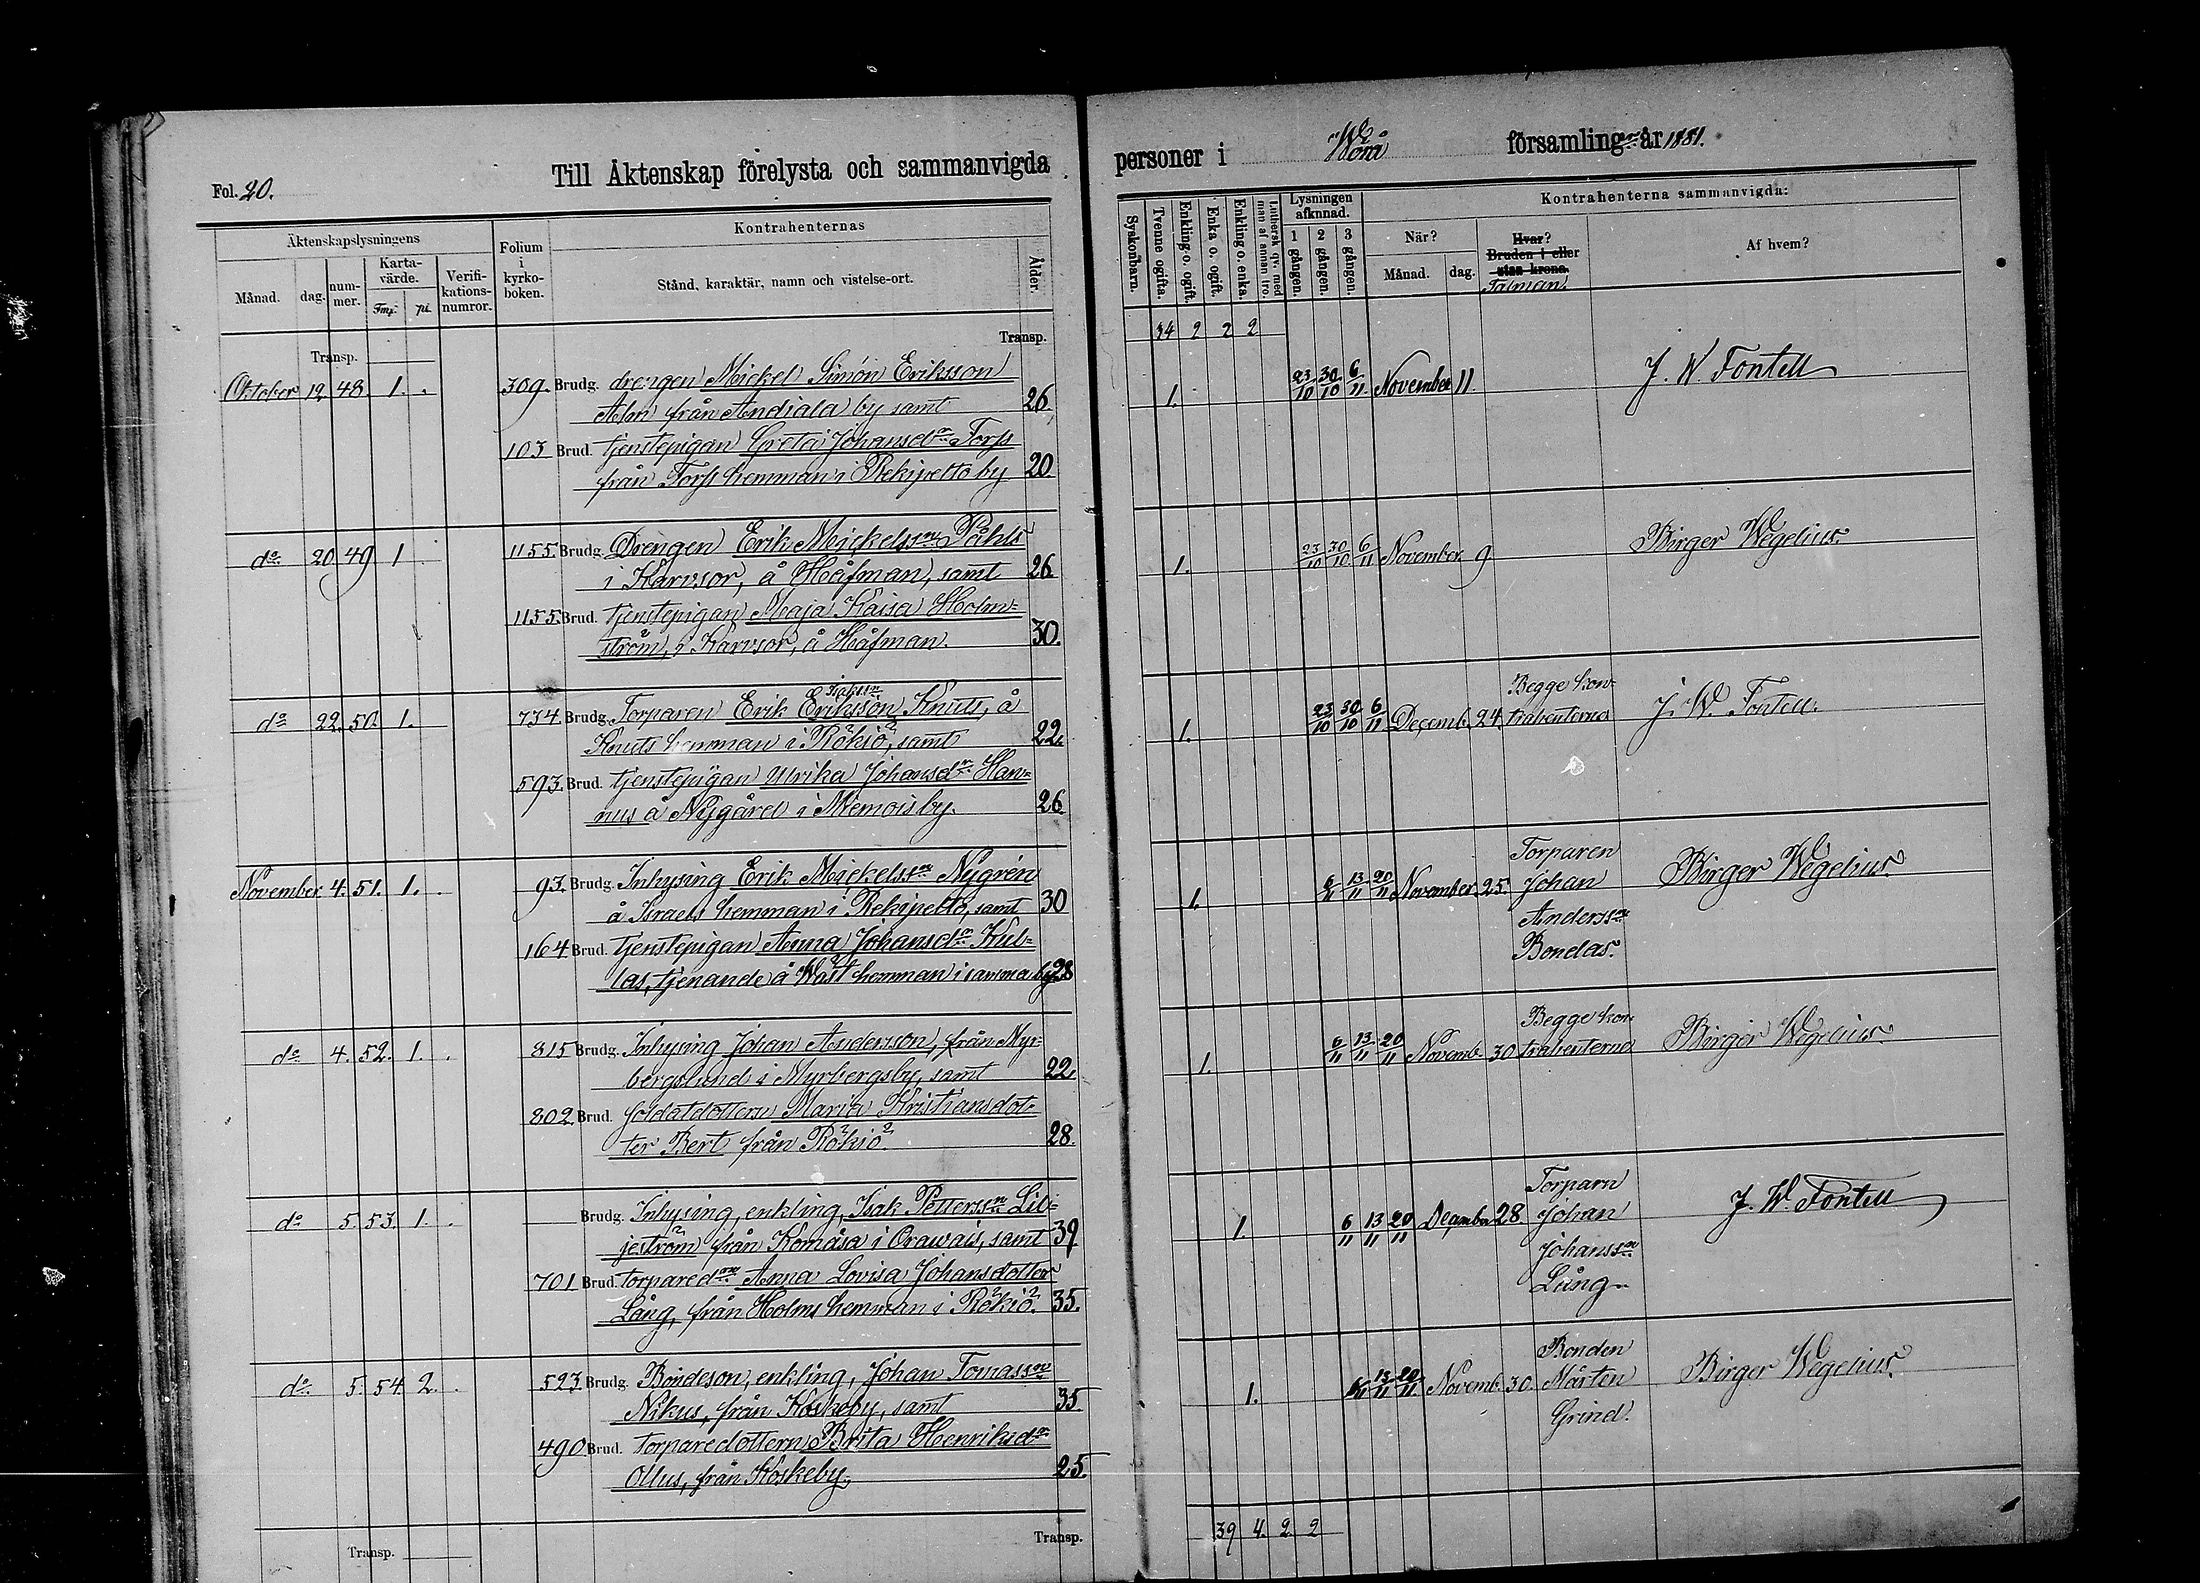 Fol. 20.
Till Äktenskap förelysta och sammanvigda
personer i Wörå församling år 1881.
Äktenskapslysningens
Folium i kyrko-boken.
Kontrahenternas
Månad.
dag.
num-mer.
Karta-värde.
Fmf.
pi
Verifi-kations-numror.
Stånd, karaktär, namn och vistelse-ort.
Ålder.
Syskonbarn.
Tvenne ogifta.
Enkling o. ogift.
Enka o. ogift.
Enkling o. enka.
Luthersk qv. med man af annan tro.
Lysningen afknnad.
1 gången.
2 gången.
3 gången.
Kontrahenterna sammanvigda:
När?
Månad.
dag.
Hvar?
Bruden i eller
utan krona.
Talman.
Af hvem?
Transp.
Transp.
34 2 2 2
Oktober 19 48. 1. . 309. Brudg. drengen Mickel Simon Eriksson
Alm från Andiala by samt 26
103 Brud. tjenstepigan Greta Johansdr Forss
från Forss hemman i Rekipelto by 20
1. 23/10 30/10 6/11 November 11. J. W. Fontell
do 20 49 1 1155. Brudg. Drengen Erik Mickelssn Påhls
i Karvsor, å Håfman, samt 26.
1155. Brud. tjenstepigan Maja Kaisa Holm=
ström, i Karvsor, å Håfman. 30.
1. 23/10 30/10 6/11 November 9 Birger Wegelius.
Isakssn
do 22. 50. 1. 734. Brudg. Torparen Erik Eriksson Knuts, å
Knuts hemman i Rökiö, samt 22.
593. Brud. tjenstepigan Ulrika Johansdr Han=
nus å Nygård i Miemoisby. 26.
1. 23/10 30/10 6/11 Decemb. 24. Begge kon=
trahenterna J. W. Fontell.
November 4. 51. 1. . 93. Brudg. Inhysing Erik Mickelssn Nygrén
å Israels hemman i Rekipelto, samt 30
164 Brud. tjenstepigan Anna Johansdr Kul=
las, tjenande å Wäst hemman i samma by. 28
1. 6/11 13/11 20/11 November. 25. Torparen
Johan
Anderssn
Bondas. Birger Wegelius.
do 4. 52. 1. . 815 Brudg. Inhysing Johan Andersson, från Myr=
bergslund i Myrbergsby, samt 22.
802. Brud. soldatdottern Maria Kristiansdot=
ter Bert från Rökiö. 28.
1. 6/11 13/11 20/11 Novemb. 30 Begge kon=
trahenterna Birger Wegelius.
do 5. 53. 1. . Brudg. Inhysing, enkling, Isak Petterssn Lil=
jeström från Komåsa i Orawais, samt 39
701 Brud. torparedrn Anna Lovisa Johansdotter
Lång, från Holms hemman i Rökiö. 35.
1. 6/11 13/11 20/11 December 28. Torparn
Johan
Johanssn
Lång J. W. Fontell
do 5. 54. 2. . 523. Brudg. Bondeson, enkling, Johan Tomassn
Nikus, från Koskeby, samt 35
490 Brud. torparedottern Brita Henriksdr
Ollus, från Koskeby. 25.
1. 6/11 13/11 20/11 Novemb. 30. Bonden
Mårten
Grind. Birger Wegelius.
Transp.
Transp.
39 4. 2. 2